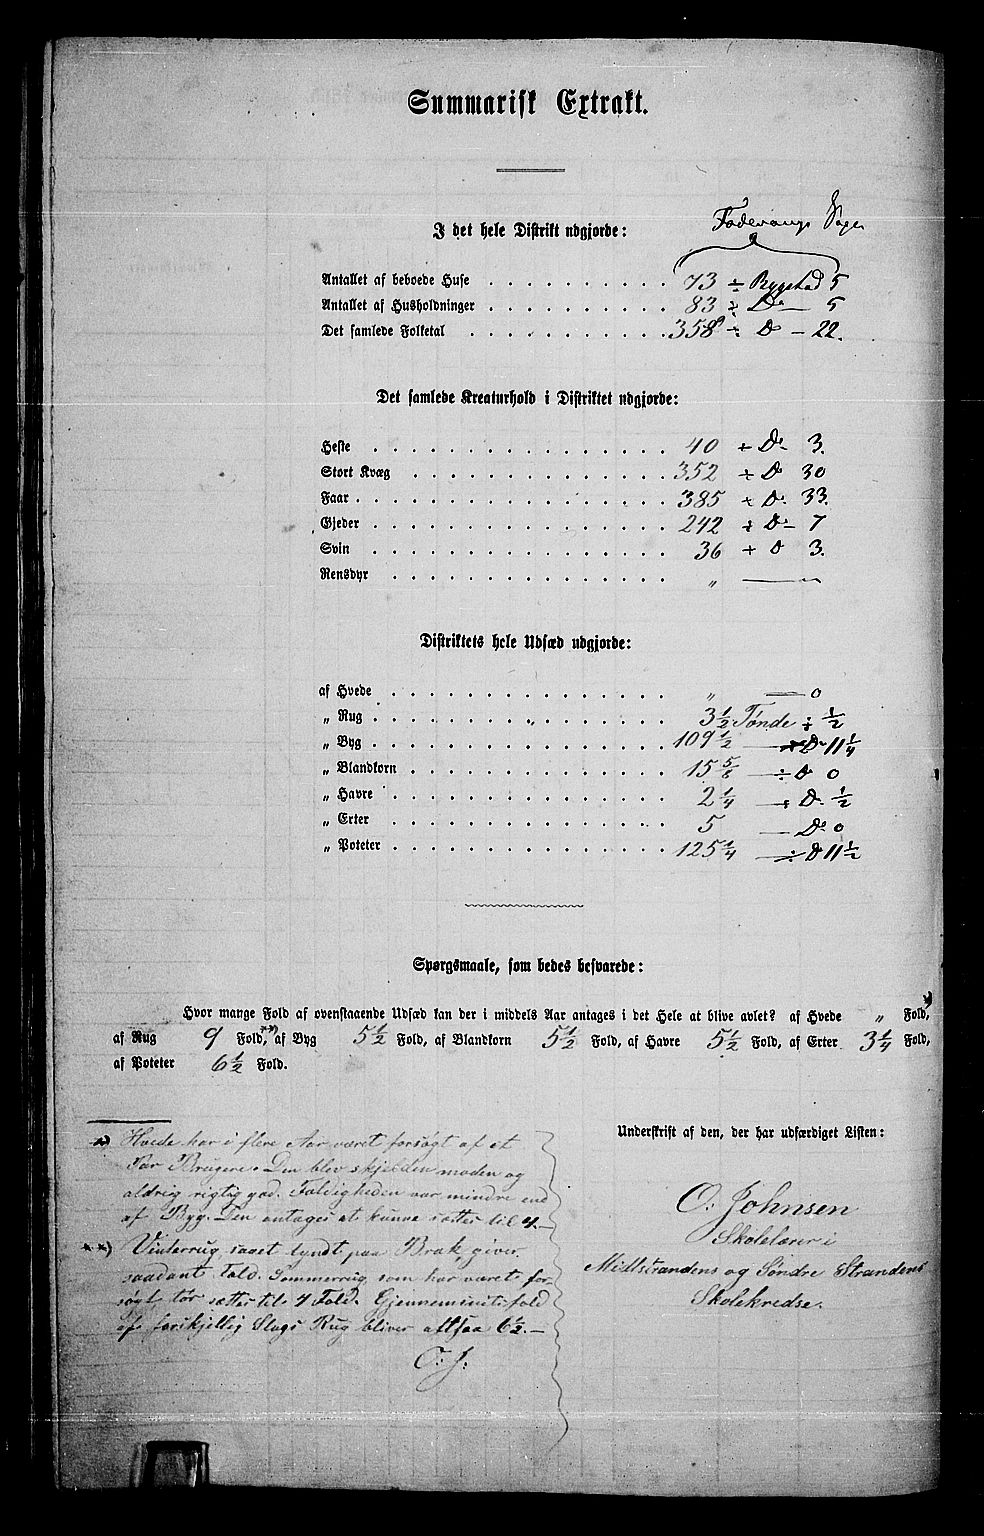 Summarisk Extrakt.
I det hele Distrikt udgjorde:
Antallet af beboede Huse . . . . . . . 73 ÷ Bygstad 5
Antallet af Husholdninger . . . . . . . 83 ÷ Do — 5
Det samlede Folketal . . . . . . . 358 ÷ Do — 22.
Det samlede Kreaturhold i Distriktet udgjorde:
Heste . . . . . . . 40 ÷ Do 3.
Stort Kvæg . . . . . . . 352 ÷ Do 30
Faar . . . . . . . 385 ÷ Do 33.
Gjeder . . . . . . . 242 ÷ Do — 7
Svin . . . . . . . 36 ÷ D 3.
Rensdyr . . . . . . . „ — „
Distriktets hele Udsæd udgjorde:
af Hvede . . . . . . . „ — 0
„ Rug . . . . . . . 3 1/2 Tønde ÷ 1/2
„ Byg . . . . . . . 109 1/2 — ÷ Do 11 1/4
„ Blandkorn . . . . . . . 15 5/6 — ÷ Do 0
„ Havre . . . . . . . 2 1/4 — ÷ Do 1/2
„ Erter . . . . . . . 5 — Do 0
„ Poteter . . . . . . . 125 1/4 — ÷ Do 11 1/2
Spørgsmaale, som bedes besvarede:
Hvor mange Fold af ovenstaaende Udsæd kan der i middels Aar antages i det Hele at blive avlet? af Hvede „ Fold, *)
af Rug 9 Fold, **) af Byg 5 1/2 Fold, af Blandkorn 5 1/2 Fold, af Havre 5 1/2 Fold, af Erter 3 1/4 Fold,
af Poteter 6 1/2 Fold.
*) Hvede har i flere Aar været forsøgt af et
Par Brugere. Den blev skjelden moden og
aldrig rigtig god. Foldigheden var mindre end
af Byg. Den antages at kunne sættes til 4.—
**) Vinterrug, saaet tyndt paa Brak, giver
saadant Fold. Sommerrug, som har været for-
søgt, tør sættes til 4 Fold. Gjennemsnitsfold
af forskjellig Slags Rug bliver altsaa 6 1/2.—
O. J.
Underskrift af den, der har udfærdiget Listen:
O. Johnsen
Skolelærer i
Midtstrandens og Søndre Strandens
Skolekredse.